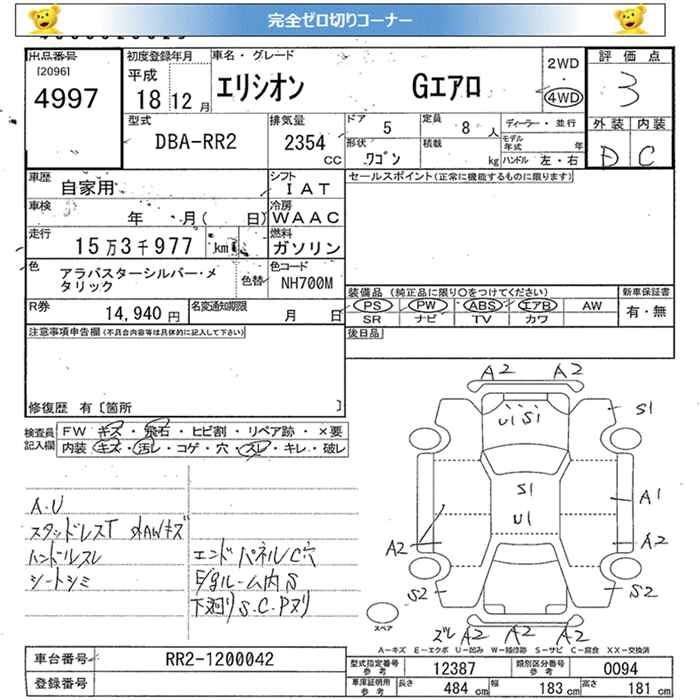 完全ゼロ切りコーナー
出品番号 初度登録年月 車名・グレード 2WD 評価点
[2096] 平成 エリシオン Gエアロ ・ 3
4997 18 12月 4WD
型式 排気量 ドア 5 定員 8人 ディーラー・並行 外装 内装
DBA-RR2 2354 CC 形状 ワゴン 積載 kg モデル年式 年 D C
ハンドル 左・右
車歴 自家用 シフト IAT セールスポイント(正常に機能するものに限ります)
車検 年 月( 日) 冷房 WAAC
走行 15万3千977 km 燃料 ガソリン
色 アラバスターシルバー・メタリック 色替 色コード NH700M
装備品(純正品に限り○をつけてください) 新車保証書
R券 14,940円 名変通知期限 月 日 PS PW ABS エアB AW 有・無
SR ナビ TV カワ
注意事項申告欄(不具合内容等は具体的に記入して下さい) 後日品
修復歴 有〔箇所 〕
検査員 FW キズ・飛石・ヒビ割・リペア跡・×要
記入欄 内装 キズ・汚レ・コゲ・穴・スレ・キレ・破レ
A.U
スタッドレスT 社AWキズ
ハンドルスレ エンドパネルC穴
シートシミ Eグルーム内S
下廻りS.C.Pヌリ
A2 A2
U1 S1 S1
S1 A1
U1
A2 A2
S2 S2
スペア ズレ A2 A2 A2
A-キズ E-エクボ U-凹み W-補修跡 S-サビ C-腐食 XX-交換済
車台番号 RR2-1200042 型式指定番号参考 12387 類別区分番号参考 0094
登録番号 車庫証明用参考 長さ 484cm 幅 183cm 高さ 181cm